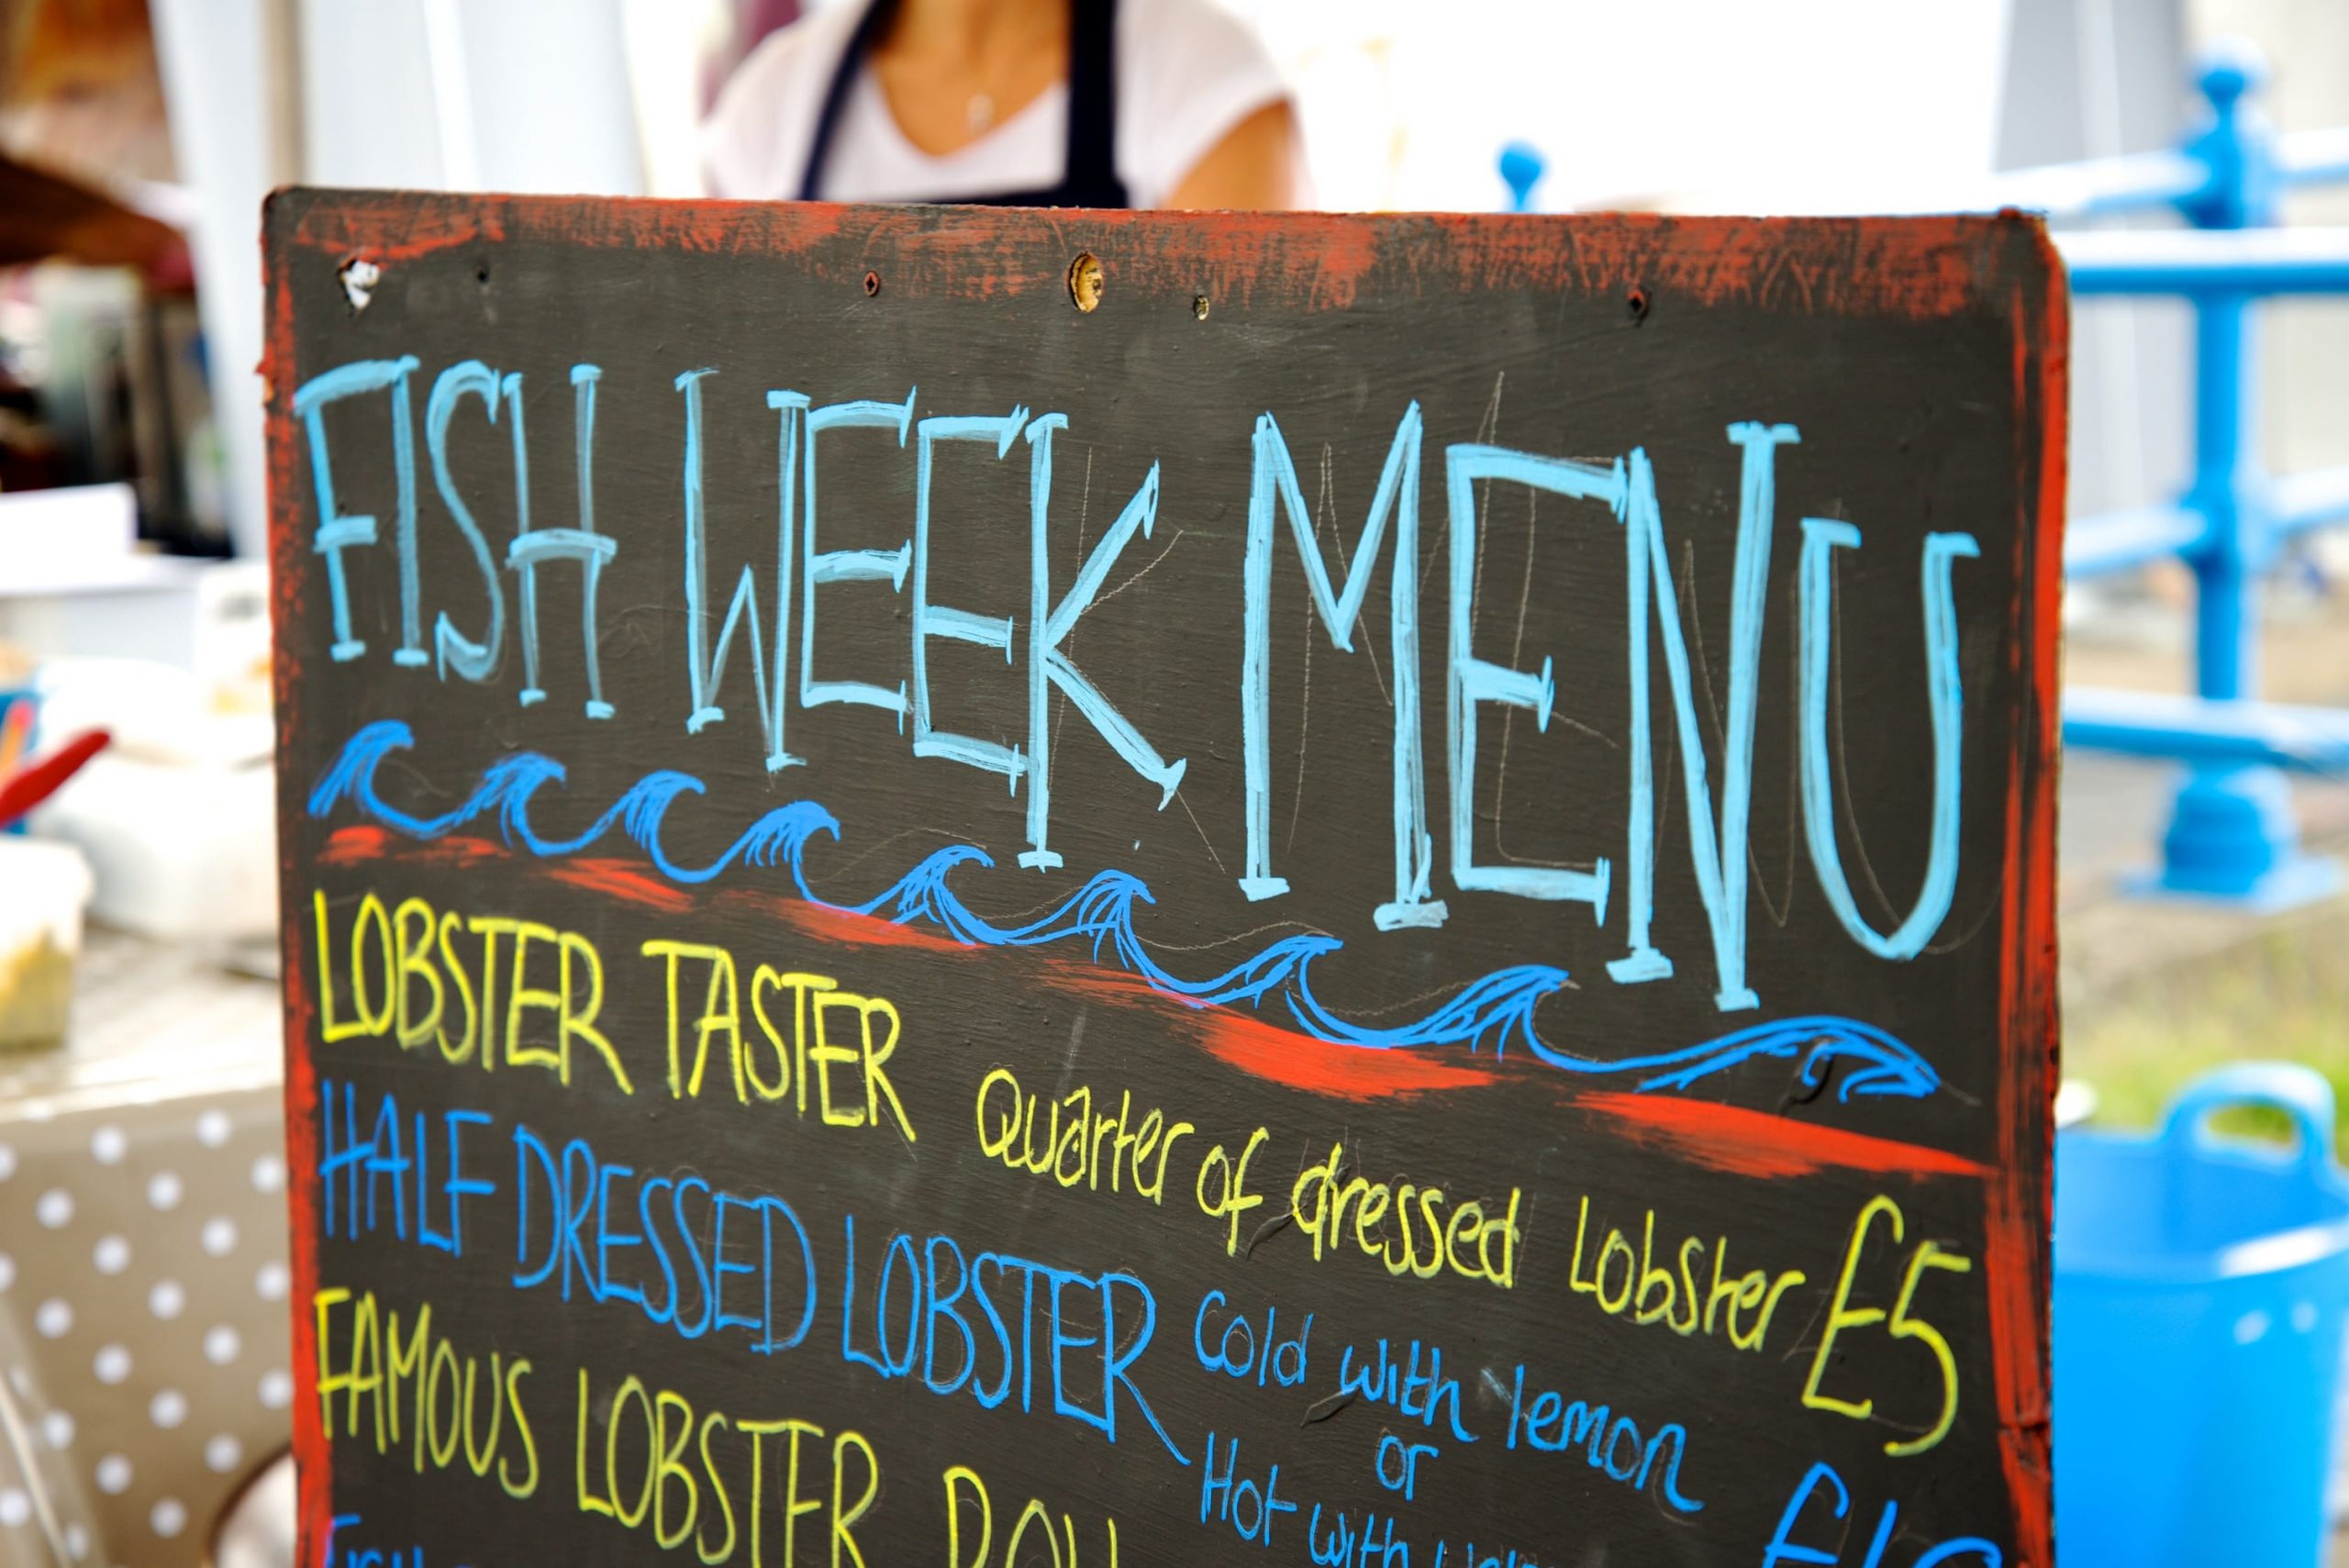 FISH WEEK MENU
LOBSTER TASTER Quarter of dressed Lobster £5
HALF DRESSED LOBSTER Cold with lemon
or
Hot with
FAMOUS LOBSTER ROLL
FISH